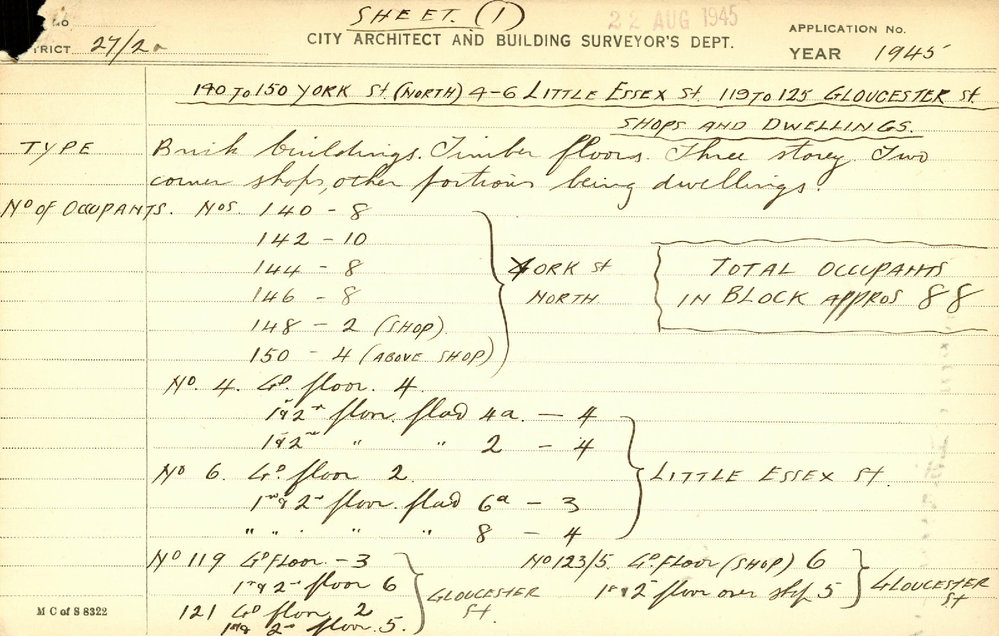 SHEET. (1)
22 AUG 1945
No
TRICT 27/2a
CITY ARCHITECT AND BUILDING SURVEYOR'S DEPT.
APPLICATION No.
YEAR 1945
140 TO 150 YORK St. (NORTH) 4-6 LITTLE ESSEX St. 119 TO 125 GLOUCESTER St.
SHOPS AND DWELLINGS.
TYPE Brick buildings. Timber floors. Three storey. Two
corner shops, other portions being dwellings.
No OF OCCUPANTS. Nos. 140 - 8
142 - 10
144 - 8
146 - 8
148 - 2 (SHOP)
150 - 4 (ABOVE SHOP)
YORK St
NORTH.
TOTAL OCCUPANTS
IN BLOCK APPROX 88
No. 4. Gd. floor. 4.
1st & 2nd floor. flat 4a - 4
1st & 2nd " " 2 - 4
No 6. Gd. floor 2.
1st & 2nd floor. flat 6a - 3
" " " " 8 - 4
LITTLE ESSEX St.
No 119 Gd FLOOR - 3
1st & 2nd floor 6
121 Gd floor 2
1st & 2nd floor. 5.
GLOUCESTER
St.
No 123/5. Gd. FLOOR (SHOP) 6
1st & 2 floor over shop 5
GLOUCESTER
St
M C of S 8322